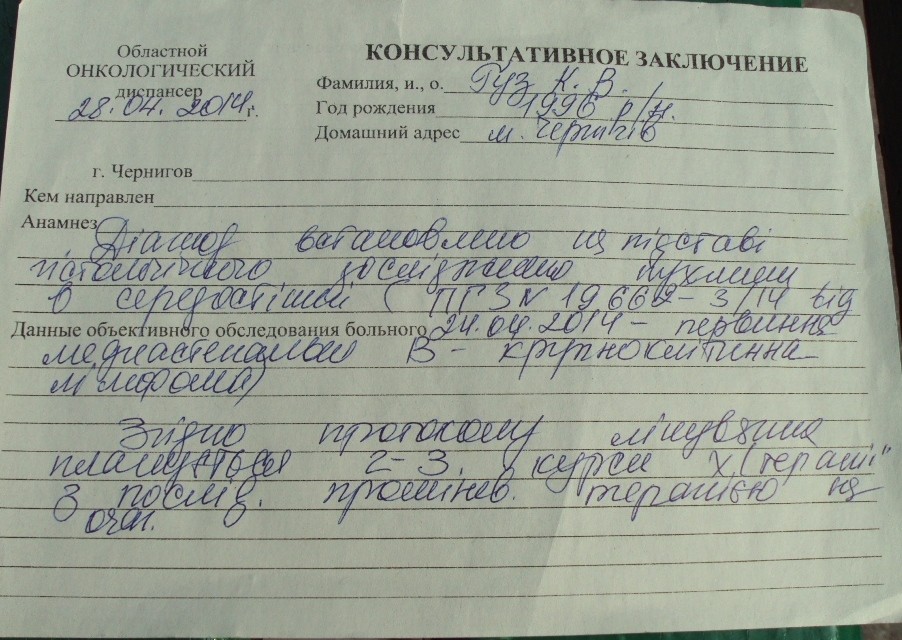 Областной
ОНКОЛОГИЧЕСКИЙ
диспансер
28.04.2014 г.
КОНСУЛЬТАТИВНОЕ ЗАКЛЮЧЕНИЕ
Фамилия, и., о. Гуз К. В.
Год рождения 1996 р/н.
Домашний адрес м. Чернігів
г. Чернигов
Кем направлен
Анамнез Діагноз встановлено на підставі
гістологічного дослідження пухлини
в середостінні ( ПГЗ № 19662-3/14 від
Данные объективного обследования больного 24.04.2014 - первинна
медиастенальна В - крупноклітинна
лімфома)
Згідно протоколу лікування
планується 2-3 курси х/терапії
з послід. промінев. терапією на
очаг.